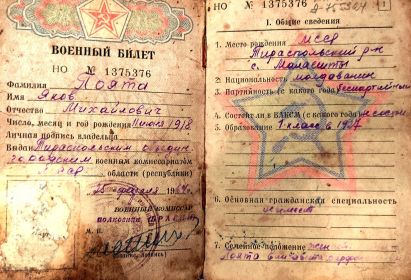 ВОЕННЫЙ БИЛЕТ
НО № 1375376
Фамилия Лоята
Имя Яков
Отчество Михайлович
Число, месяц и год рождения 11 июня 1918
Личная подпись владельца
Выдан Тираспольским объедин.
городским военным комиссариатом
области (республики)
25 февраля
ВОЕННЫЙ КОМИССАР
М. П.
НО № 1375376
1
I. Общие сведения
1. Место рождения МССР
Тираспольский р-н
с. Малаешты
2. Национальность молдаванин
3. Партийность (с какого года) беспартийный
4. Состоит ли в ВЛКСМ (с какого года)
5. Образование 1 класс в
6. Основная гражданская специальность
7. Семейное положение
Лоята